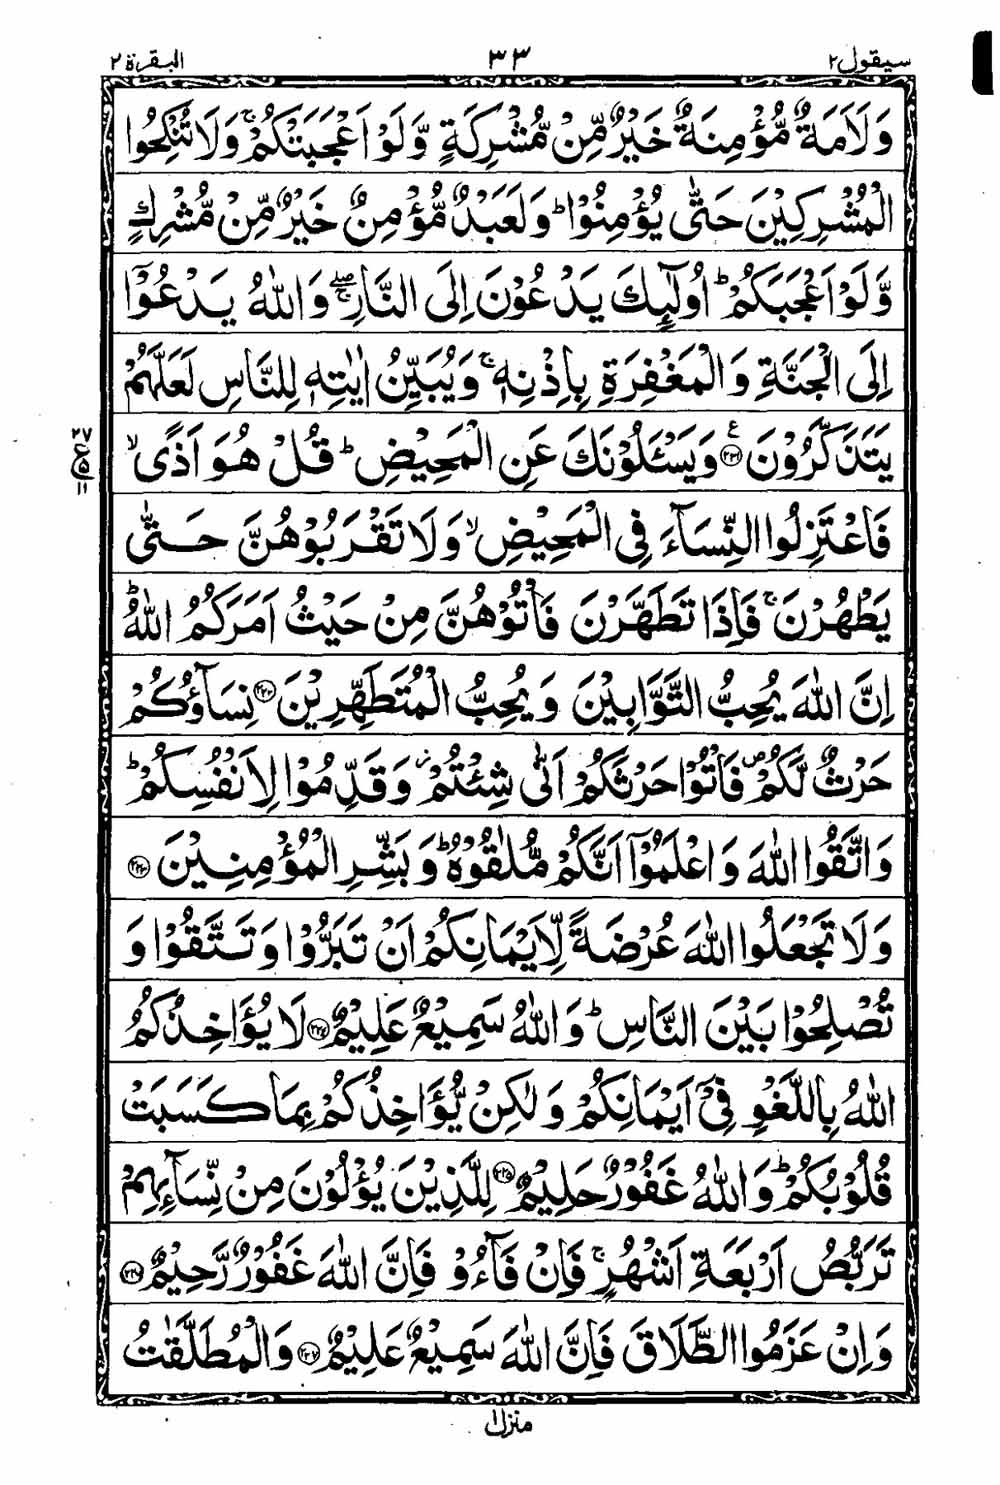 سيقول ٢
٣٣
البقرة ٢
وَلَاَمَةٌ مُّؤْمِنَةٌ خَيْرٌ مِّنْ مُّشْرِكَةٍ وَّلَوْ اَعْجَبَتْكُمْ ۚ وَلَا تُنْكِحُوا
الْمُشْرِكِيْنَ حَتّٰى يُؤْمِنُوْا ؕ وَلَعَبْدٌ مُّؤْمِنٌ خَيْرٌ مِّنْ مُّشْرِكٍ
وَّلَوْ اَعْجَبَكُمْ ؕ اُولٰٓئِكَ يَدْعُوْنَ اِلَى النَّارِ ۖۚ وَاللّٰهُ يَدْعُوْٓا
اِلَى الْجَنَّةِ وَالْمَغْفِرَةِ بِاِذْنِهٖ ۚ وَيُبَيِّنُ اٰيٰتِهٖ لِلنَّاسِ لَعَلَّهُمْ
يَتَذَكَّرُوْنَ ﴿٢٢١﴾ ع وَيَسْـَٔلُوْنَكَ عَنِ الْمَحِيْضِ ؕ قُلْ هُوَ اَذًى ۙ
٢٧
ع ٥
١١
فَاعْتَزِلُوا النِّسَآءَ فِى الْمَحِيْضِ ۙ وَلَا تَقْرَبُوْهُنَّ حَتّٰى
يَطْهُرْنَ ۚ فَاِذَا تَطَهَّرْنَ فَاْتُوْهُنَّ مِنْ حَيْثُ اَمَرَكُمُ اللّٰهُ ؕ
اِنَّ اللّٰهَ يُحِبُّ التَّوَّابِيْنَ وَيُحِبُّ الْمُتَطَهِّرِيْنَ ﴿٢٢٢﴾ نِسَآؤُكُمْ
حَرْثٌ لَّكُمْ ۪ فَاْتُوْا حَرْثَكُمْ اَنّٰى شِئْتُمْ ؗ وَقَدِّمُوْا لِاَنْفُسِكُمْ ؕ
وَاتَّقُوا اللّٰهَ وَاعْلَمُوْٓا اَنَّكُمْ مُّلٰقُوْهُ ؕ وَبَشِّرِ الْمُؤْمِنِيْنَ ﴿٢٢٣﴾
وَلَا تَجْعَلُوا اللّٰهَ عُرْضَةً لِّاَيْمَانِكُمْ اَنْ تَبَرُّوْا وَتَتَّقُوْا وَ
تُصْلِحُوْا بَيْنَ النَّاسِ ؕ وَاللّٰهُ سَمِيْعٌ عَلِيْمٌ ﴿٢٢٤﴾ لَا يُؤَاخِذُكُمُ
اللّٰهُ بِاللَّغْوِ فِىْٓ اَيْمَانِكُمْ وَلٰكِنْ يُّؤَاخِذُكُمْ بِمَا كَسَبَتْ
قُلُوْبُكُمْ ؕ وَاللّٰهُ غَفُوْرٌ حَلِيْمٌ ﴿٢٢٥﴾ لِلَّذِيْنَ يُؤْلُوْنَ مِنْ نِّسَآئِهِمْ
تَرَبُّصُ اَرْبَعَةِ اَشْهُرٍ ۚ فَاِنْ فَآءُوْ فَاِنَّ اللّٰهَ غَفُوْرٌ رَّحِيْمٌ ﴿٢٢٦﴾
وَاِنْ عَزَمُوا الطَّلَاقَ فَاِنَّ اللّٰهَ سَمِيْعٌ عَلِيْمٌ ﴿٢٢٧﴾ وَالْمُطَلَّقٰتُ
منزل ١